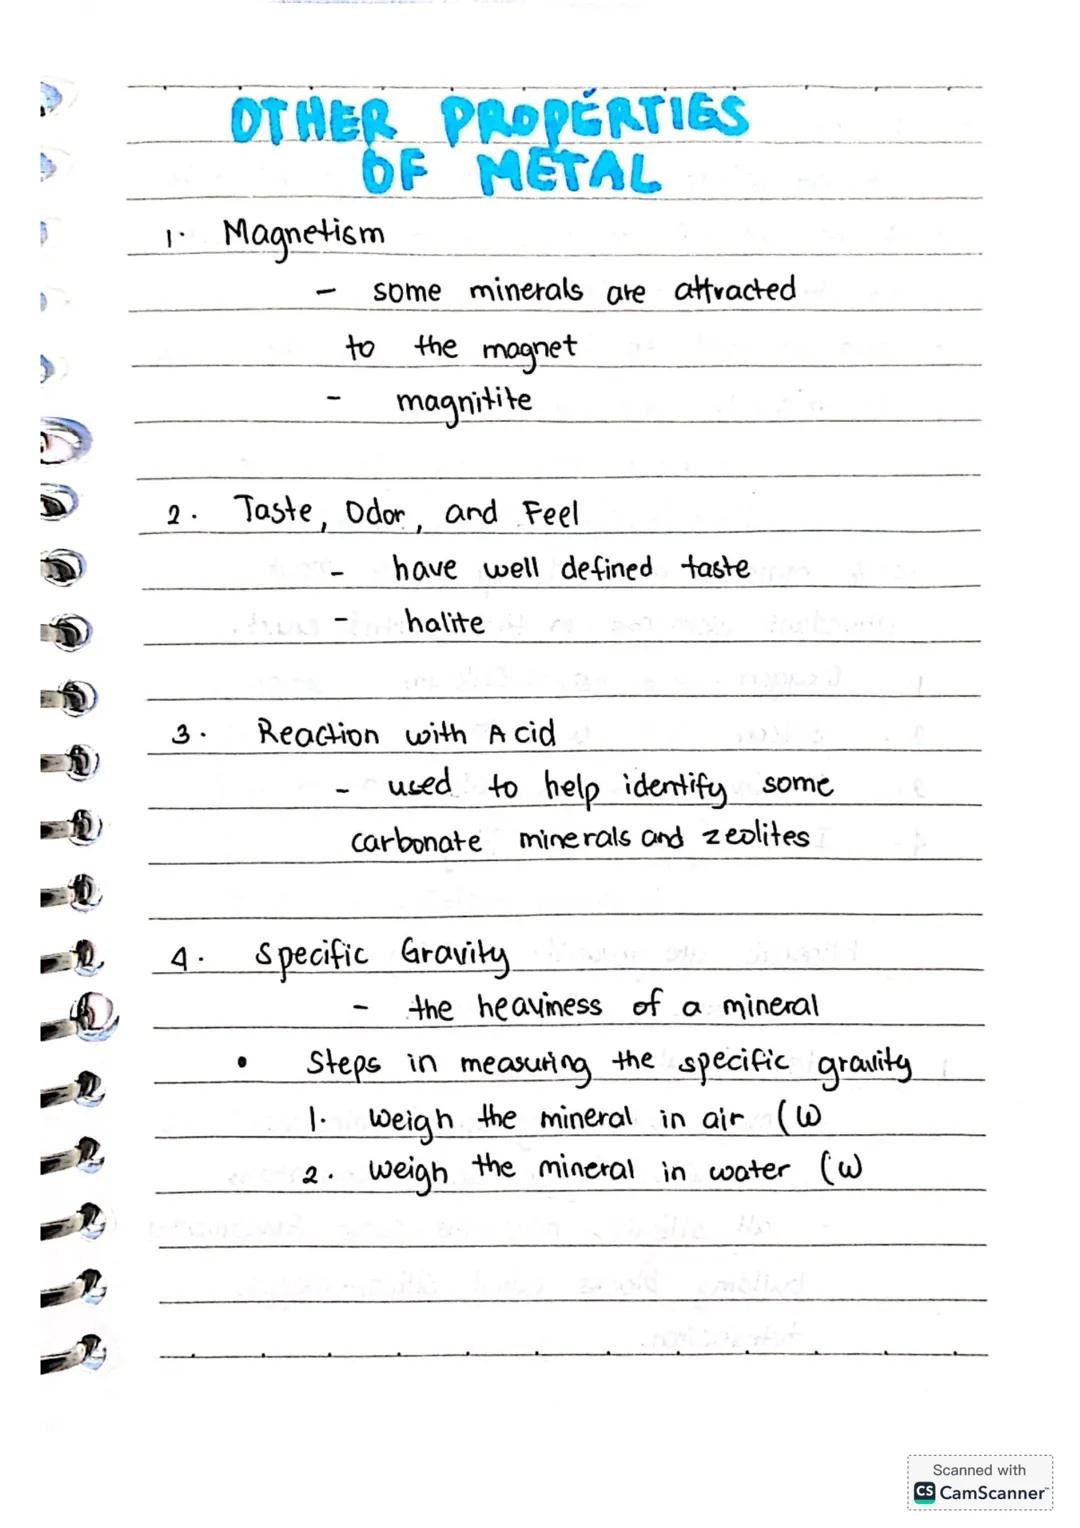 OTHER PROPERTIES
OF METAL
1. Magnetism
- some minerals are attracted
to the magnet
- magnitite
2. Taste, Odor, and Feel
- have well defined taste
- halite
3. Reaction with Acid
- used to help identify some
carbonate minerals and zeolites
4. Specific Gravity
- the heaviness of a mineral
• Steps in measuring the specific gravity
1. weigh the mineral in air (W
2. weigh the mineral in water (W
Scanned with
CS CamScanner